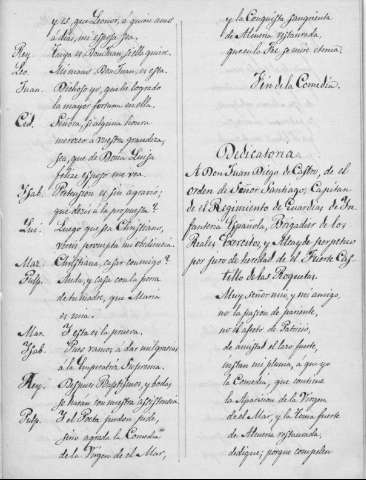 y es, que Leonor, á quien amo
á Mar, mi esposa sea.
Rey. Tuya es Don Juan, si ella quiere.
Leo. Mi mano Don Juan, es esta.
Juan. Dichoso yo, que he logrado
la mayor fortuna en ella.
Cid. Señora, si alguna hora
merecer á vuestra grandeza,
sea, que de Doña Luisa
felize esposo me vea.
Ysab. Pretension es sin agravio;
que decis á la propuesta?
Lui. Luego que sea Christiano,
vereis, prevenida mi obediencia.
Mar. Christiana, casar conmigo?
Pulp. Anda, y casa con la perra
de tu madre, que Maria
es mia.
Mar. Y esta es la prueva.
Ysab. Pues vamos á dar mil gracias
á la Emperatriz Suprema.
Rey. Despues Baptismos, y bodas
se hacen con nuestra assistencia
Pulp. Y el Poeta perdon pide,
sino agrada la Comedia
de la Virgen de el Mar,
y la Conquista sangrienta
de Almeria restaurada,
que en la Fee se mire eterna.
Fin de la Comedia.
Dedicatoria
A Don Juan Diego de Castro, de el
orden de Señor Santiago, Capitan
de el Regimiento de Guardias de In-
fanteria Española, Brigadier de los
Reales Exercitos, y Alcayde perpetuo
por juro de heredad de el Fuerte Cas-
tillo de las Roquetas.
Muy Señor mio, y mi amigo,
no la passion de pariente,
no el afecto de Patricio,
de amistad el lazo fuerte,
instan mi pluma, á que yo
la Comedia, que contiene
la Aparicion de la Virgen
de el Mar, y la Toma fuerte
de Almeria restaurada,
dedique; porque competen